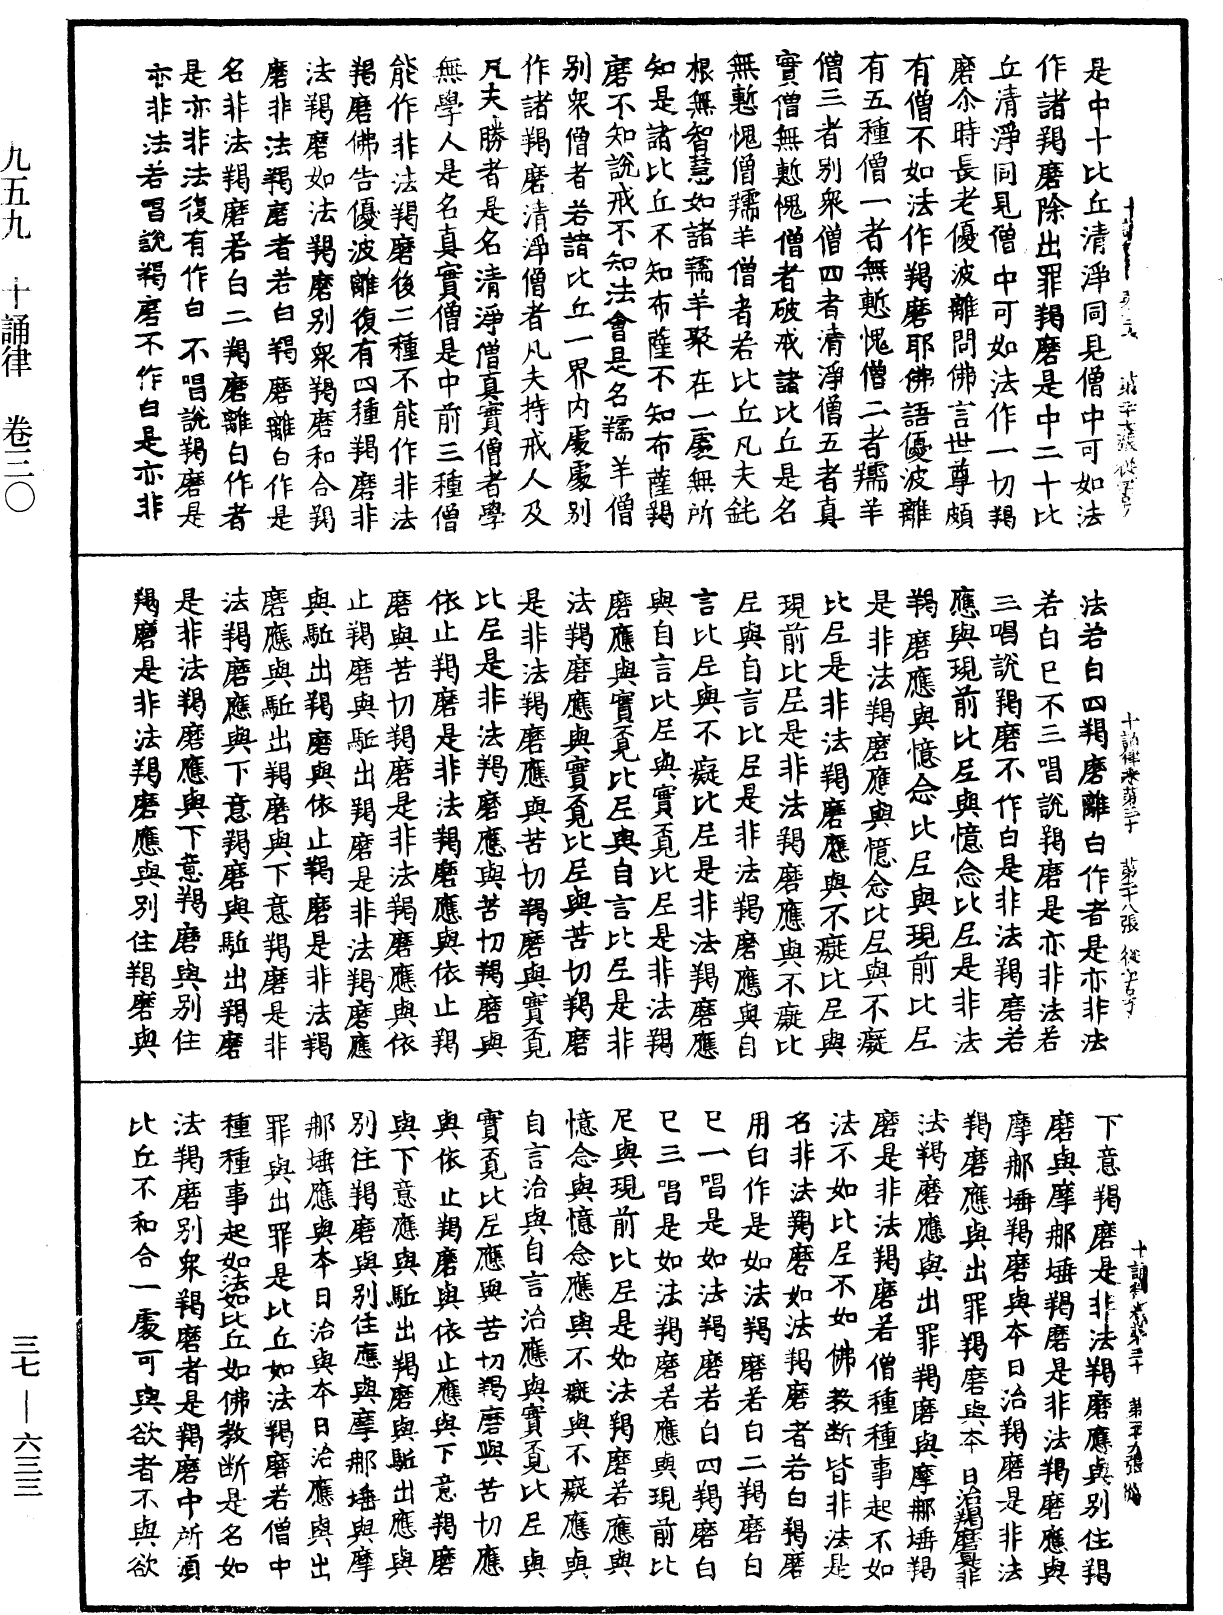 是中十比丘清淨同見僧中可如法
作諸羯磨除出罪羯磨是中二十比
丘清淨同見僧中可如法作一切羯
磨尒時長老優波離問佛言世尊頗
有僧不如法作羯磨耶佛語優波離
有五種僧一者無慙愧僧二者羺羊
僧三者別衆僧四者清淨僧五者真
實僧無慙愧僧者破戒諸比丘是名
無慙愧僧羺羊僧者若比丘凡夫鈍
根無智慧如諸羺羊聚在一處無所
知是諸比丘不知布薩不知布薩羯
磨不知說戒不知法會是名羺羊僧
別衆僧者若諸比丘一界內處處別
作諸羯磨清淨僧者凡夫持戒人及
凡夫勝者是名清淨僧真實僧者學
無學人是名真實僧是中前三種僧
能作非法羯磨後二種不能作非法
羯磨佛告優波離復有四種羯磨非
法羯磨如法羯磨別衆羯磨和合羯
磨非法羯磨者若白羯磨離白作是
名非法羯磨若白二羯磨離白作者
是亦非法復有作白不唱說羯磨是
亦非法若唱說羯磨不作白是亦非
法若白四羯磨離白作者是亦非法
若白已不三唱說羯磨是亦非法若
三唱說羯磨不作白是非法羯磨若
應與現前比尼與憶念比尼是非法
羯磨應與憶念比尼與現前比尼
是非法羯磨應與憶念比尼與不癡
比尼是非法羯磨應與不癡比尼與
現前比尼是非法羯磨應與不癡比
尼與自言比尼是非法羯磨應與自
言比尼與不癡比尼是非法羯磨應
與自言比尼與實覓比尼是非法羯
磨應與實覓比尼與自言比尼是非
法羯磨應與實覓比尼與苦切羯磨
是非法羯磨應與苦切羯磨與實覓
比尼是非法羯磨應與苦切羯磨與
依止羯磨是非法羯磨應與依止羯
磨與苦切羯磨是非法羯磨應與依
止羯磨與駈出羯磨是非法羯磨應
與駈出羯磨與依止羯磨是非法羯
磨應與駈出羯磨與下意羯磨是非
法羯磨應與下意羯磨與駈出羯磨
是非法羯磨應與下意羯磨與別住
羯磨是非法羯磨應與別住羯磨與
下意羯磨是非法羯磨應與別住羯
磨與摩那埵羯磨是非法羯磨應與
摩那埵羯磨與本日治羯磨是非法
羯磨應與出罪羯磨與本日治羯磨是非
法羯磨應與出罪羯磨與摩那埵羯
磨是非法羯磨若僧種種事起不如
法不如比尼不如佛教斷皆非法是
名非法羯磨如法羯磨者若白羯磨
用白作是如法羯磨若白二羯磨白
已一唱是如法羯磨若白四羯磨白
已三唱是如法羯磨若應與現前比
尼與現前比尼是如法羯磨若應與
憶念與憶念應與不癡與不癡應與
自言治與自言治應與實覓比尼與
實覓比尼應與苦切羯磨與苦切應
與依止羯磨與依止應與下意羯磨
與下意應與駈出羯磨與駈出應與
別住羯磨與別住應與摩那埵與摩
那埵應與本日治與本日治應與出
罪與出罪是比丘如法羯磨若僧中
種種事起如法如比丘如佛教斷是名如
法羯磨別衆羯磨者是羯磨中所須
比丘不和合一處可與欲者不與欲
九五九 十誦律 卷三〇
三七—六三三